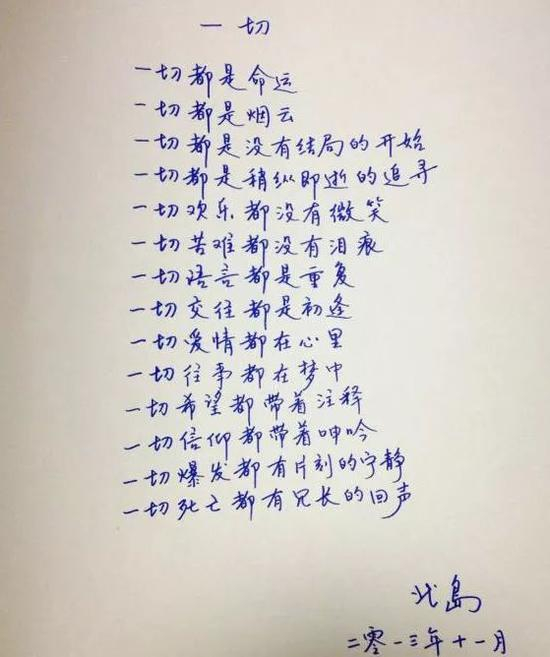 一切
一切都是命运
一切都是烟云
一切都是没有结局的开始
一切都是稍纵即逝的追寻
一切欢乐都没有微笑
一切苦难都没有泪痕
一切语言都是重复
一切交往都是初逢
一切爱情都在心里
一切往事都在梦中
一切希望都带着注释
一切信仰都带着呻吟
一切爆发都有片刻的宁静
一切死亡都有冗长的回声
北岛
二零一三年十一月